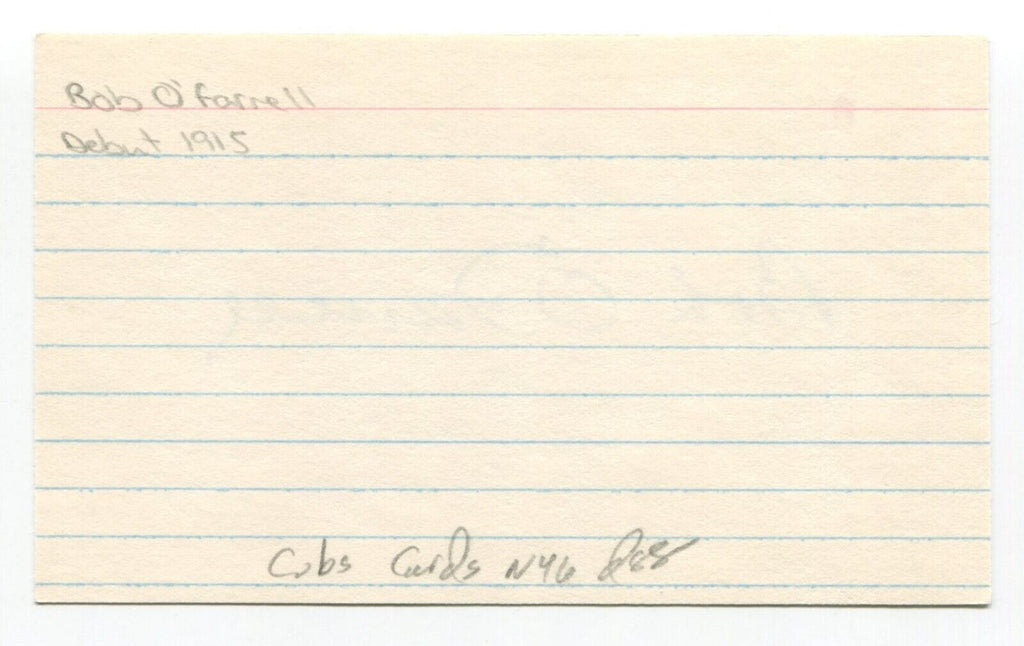 Bob O'Farrell
Debut 1915
Cubs Cards NYG